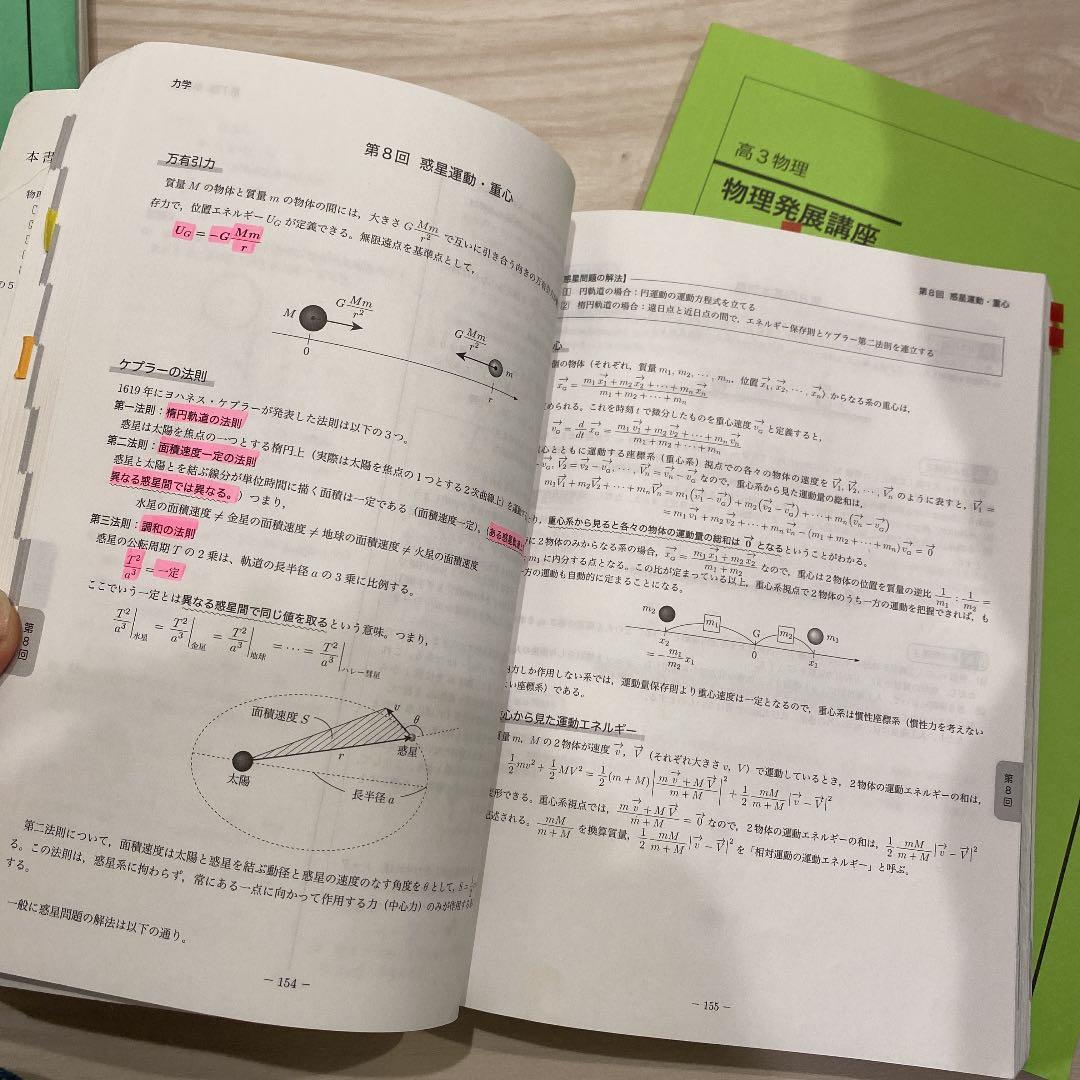 力学
第8回 惑星運動・重心
万有引力
質量 M の物体と質量 m の物体の間には,大きさ G Mm/r² で互いに引き合う向きの万有引力が
存力で,位置エネルギー U_G が定義できる。無限遠点を基準点として,
U_G = −G Mm/r
G Mm/r²
M
G Mm/r²
m
0
r
ケプラーの法則
1619年にヨハネス・ケプラーが発表した法則は以下の3つ。
第一法則:楕円軌道の法則
惑星は太陽を焦点の一つとする楕円上(実際は太陽を焦点の1つとする2次曲線上)を
第二法則:面積速度一定の法則
惑星と太陽とを結ぶ線分が単位時間に描く面積は一定である(面積速度一定)。(ある惑星
異なる惑星間では異なる。)つまり,
水星の面積速度 ≠ 金星の面積速度 ≠ 地球の面積速度 ≠ 火星の面積速度
第三法則:調和の法則
惑星の公転周期 T の2乗は,軌道の長半径 a の3乗に比例する。
T²/a³ = 一定
ここでいう一定とは異なる惑星間で同じ値を取るという意味。つまり,
T²/a³|水星 = T²/a³|金星 = T²/a³|地球 = ⋯ = T²/a³|ハレー彗星
面積速度 S
v
θ
惑星
r
太陽
長半径 a
第二法則について,面積速度は太陽と惑星を結ぶ動径と惑星の速度のなす角度を θ として,S =
る。この法則は,惑星系に拘わらず,常にある一点に向かって作用する力(中心力)のみが作用する
する。
一般に惑星問題の解法は以下の通り。
− 154 −
第8回
本書
物理
の5
高3物理
物理発展講座
第8回 惑星運動・重心
惑星問題の解法】
1 円軌道の場合:円運動の運動方程式を立てる
2 楕円軌道の場合:遠日点と近日点の間で,エネルギー保存則とケプラー第二法則を連立する
心
個の物体(それぞれ,質量 m₁, m₂, ⋯, mₙ, 位置 x₁→, x₂→, ⋯, xₙ→)からなる系の重心は,
x_G→ = (m₁x₁→ + m₂x₂→ + ⋯ + mₙxₙ→)/(m₁ + m₂ + ⋯ + mₙ)
められる。これを時刻 t で微分したものを重心速度 v_G→ と定義すると,
v_G→ = d/dt x_G→ = (m₁v₁→ + m₂v₂→ + ⋯ + mₙvₙ→)/(m₁ + m₂ + ⋯ + mₙ)
心とともに運動する座標系(重心系)視点での各々の物体の速度を V₁→, V₂→, ⋯, Vₙ→ のように表すと, V₁→ =
− v_G→, V₂→ = v₂→ − v_G→, ⋯, Vₙ→ = vₙ→ − v_G→ なので,重心系から見た運動量の総和は,
m₁V₁→ + m₂V₂→ + ⋯ + mₙVₙ→ = m₁(v₁→ − v_G→) + m₂(v₂→ − v_G→) + ⋯ + mₙ(vₙ→ − v_G→)
= m₁v₁→ + m₂v₂→ + ⋯ + mₙvₙ→ − (m₁ + m₂ + ⋯ + mₙ)v_G→ = 0→
り,重心系から見ると各々の物体の運動量の総和は 0→ となるということがわかる。
に2物体のみからなる系の場合, x_G→ = (m₁x₁→ + m₂x₂→)/(m₁ + m₂) なので,重心は2物体の位置を質量の逆比 1/m₁ : 1/m₂ =
: m₁ に内分する点となる。この比が定まっている以上,重心系視点で2物体のうち一方の運動を把握できれば,も
一方の運動も自動的に定まることになる。
m₂
m₁
G
m₂
m₁
x₂
0
x₁
= −m₁/m₂ x₁
力しか作用しない系では,運動量保存則より重心速度は一定となるので,重心系は慣性座標系(慣性力を考えない
い座標系)である。
心から見た運動エネルギー
質量 m, M の2物体が速度 v→, V→(それぞれ大きさ v, V)で運動しているとき,2物体の運動エネルギーの和は,
1/2 mv² + 1/2 MV² = 1/2 (m + M)|(mv→ + MV→)/(m + M)|² + 1/2 mM/(m + M) |v→ − V→|²
変形できる。重心系視点では, (mv→ + MV→)/(m + M) = 0→ なので,2物体の運動エネルギーの和は, 1/2 mM/(m + M) |v→ − V→|²
記述される。 mM/(m + M) を換算質量, 1/2 mM/(m + M) |v→ − V→|² を「相対運動の運動エネルギー」と呼ぶ。
第8回
− 155 −